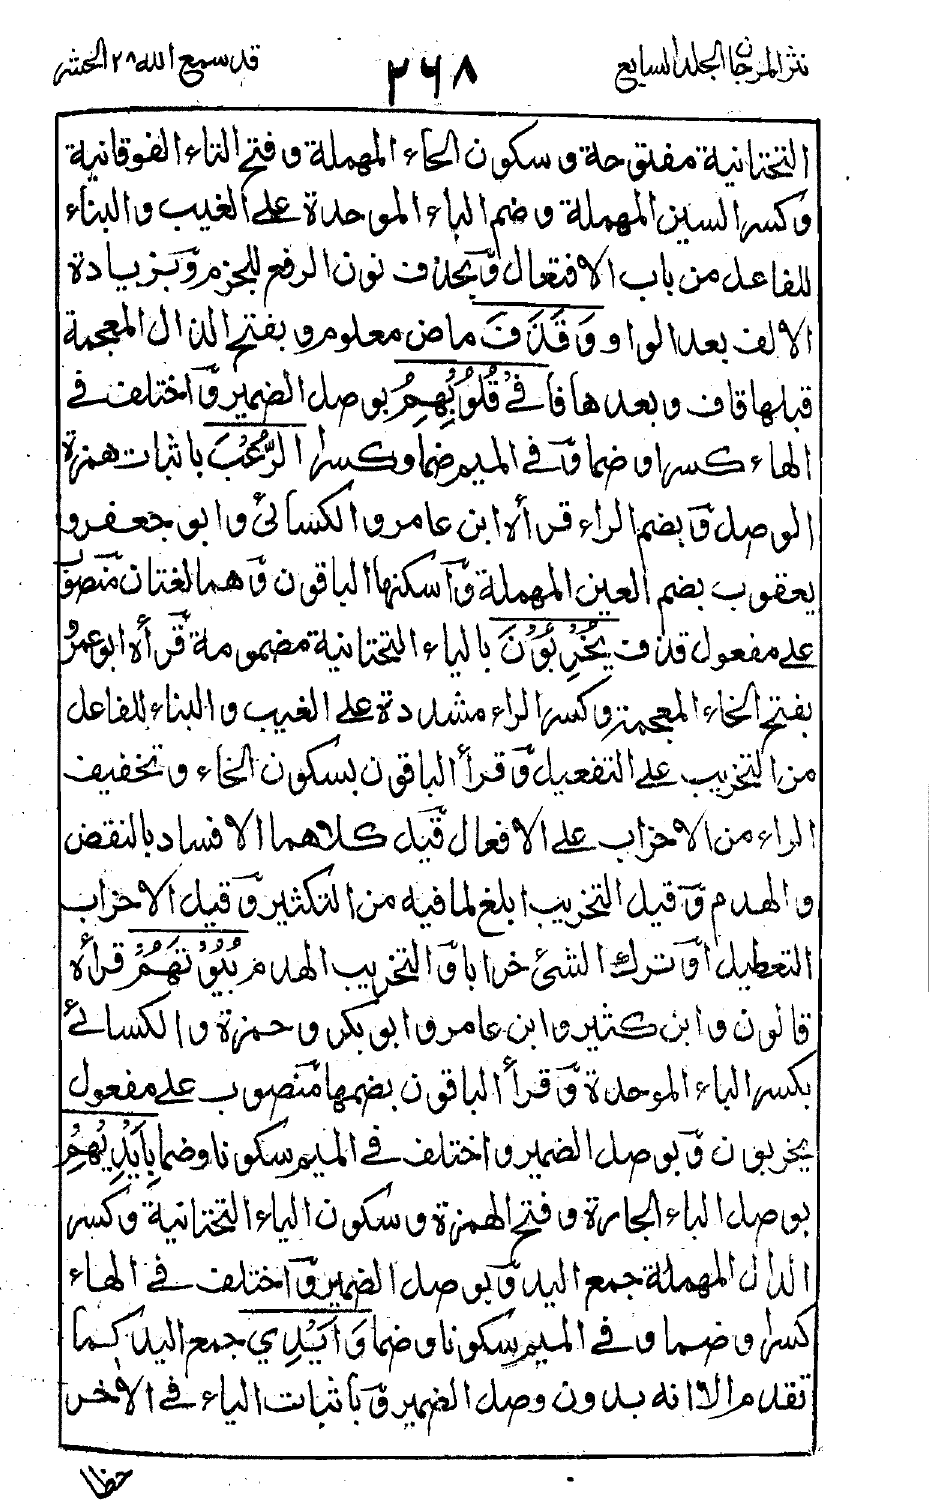 نثر المرجان الجلد السابع
٢٦٨
قد سمع الله ٢٨ الحشر
التحتانية مفتوحة وسكون الحاء المهملة وفتح التاء الفوقانية
وكسر السين المهملة وضم الباء الموحدة على الغيب والبناء
للفاعل من باب الافتعال وَبحذف نون الرفع للجزم وَبزيادة
الالف بعد الواو وَقَذَفَ ماض معلوم وبفتح الذال المعجمة
قبلها قاف وبعدها فا فِيْ قُلُوْبِهِمُ بوصل الضمير وَاختلف في
الهاء كسرا وضما وَفي الميم ضما وكسرا الرُّعْبَ باثبات همزة
الوصل وَبضم الراء قرأه ابن عامر والكسائئ وابو جعفر و
يعقوب بضم العين المهملة وَاسكنها الباقون وَهما لغتان منصوب
على مفعول قذف يُخْرِبُوْنَ بالياء التحتانية مضمومة قرأه ابو عمرو
بفتح الخاء المعجمة وكسر الراء مشددة على الغيب والبناء للفاعل
من التخريب على التفعيل وَقرأ الباقون بسكون الخاء وتخفيف
الراء من الاخراب على الافعال قيل كلاهما الافساد بالنقض
والهدم وَقيل التخريب ابلغ لما فيه من التكثير وَقيل الاخراب
التعطيل اَو ترك الشئ خرابا وَالتخريب الهدم بُيُوْتَهُمْ قرأه
قالون وابن كثير وابن عامر وابو بكر وحمزة والكسائئ
بكسر الباء الموحدة وَقرأ الباقون بضمها منصوب على مفعول
يخربون وَبوصل الضمير واختلف في الميم سكونا وضما بِاَيْدِيْهِمْ
بوصل الباء الجارة وفتح الهمزة وسكون الياء التحتانية وكسر
الدال المهملة جمع اليد وَبوصل الضمير وَاختلف في الهاء
كسرا وضما وفي الميم سكونا وضما وَاَيْدِي جمع اليد كما
تقدم الا انه بدون وصل الضمير وَباثبات الياء في الاخر
خطا